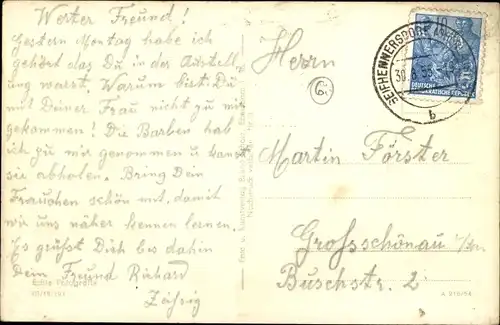 Werter Freund!
Gestern Montag habe ich
gehört das Du in der Ausstell
ung warst. Warum bist Du
mit Deiner Frau nicht zu mir
gekommen! Die Barben hab
ich zu mir genommen u kannst
sie abholen. Bring Dein
Frauchen schön mit, damit
wir uns näher kennen lernen.
Es grüßt Dich bis dahin
Dein Freund Richard
Echte Fotografie
Herrn
Martin Förster
Großschönau i/Sa.
Buschstr. 2
A 815/54
SEIFHENNERSDORF
30.8.55
b
10
DEUTSCHE
DEMOKRATISCHE REPUBLIK